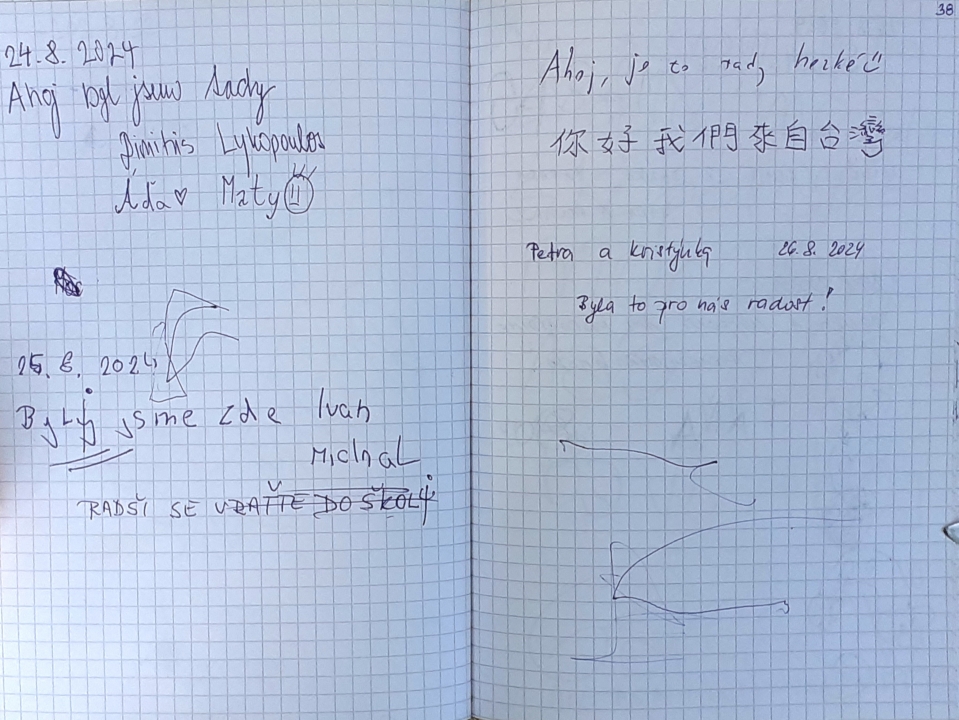 24.8.2024
Ahoj byl jsem tady
Dimitris Lykopoulos
Áďa ♡ Maty
25.8.2024
Bylỳ jsme zde Ivan
Michal
RADŠÍ SE VRAŤTE DO ŠKOLY
38
Ahoj, je to tady hezké
你好我們來自台灣
Petra a Kristýnka 26.8.2024
Byla to pro nás radost!